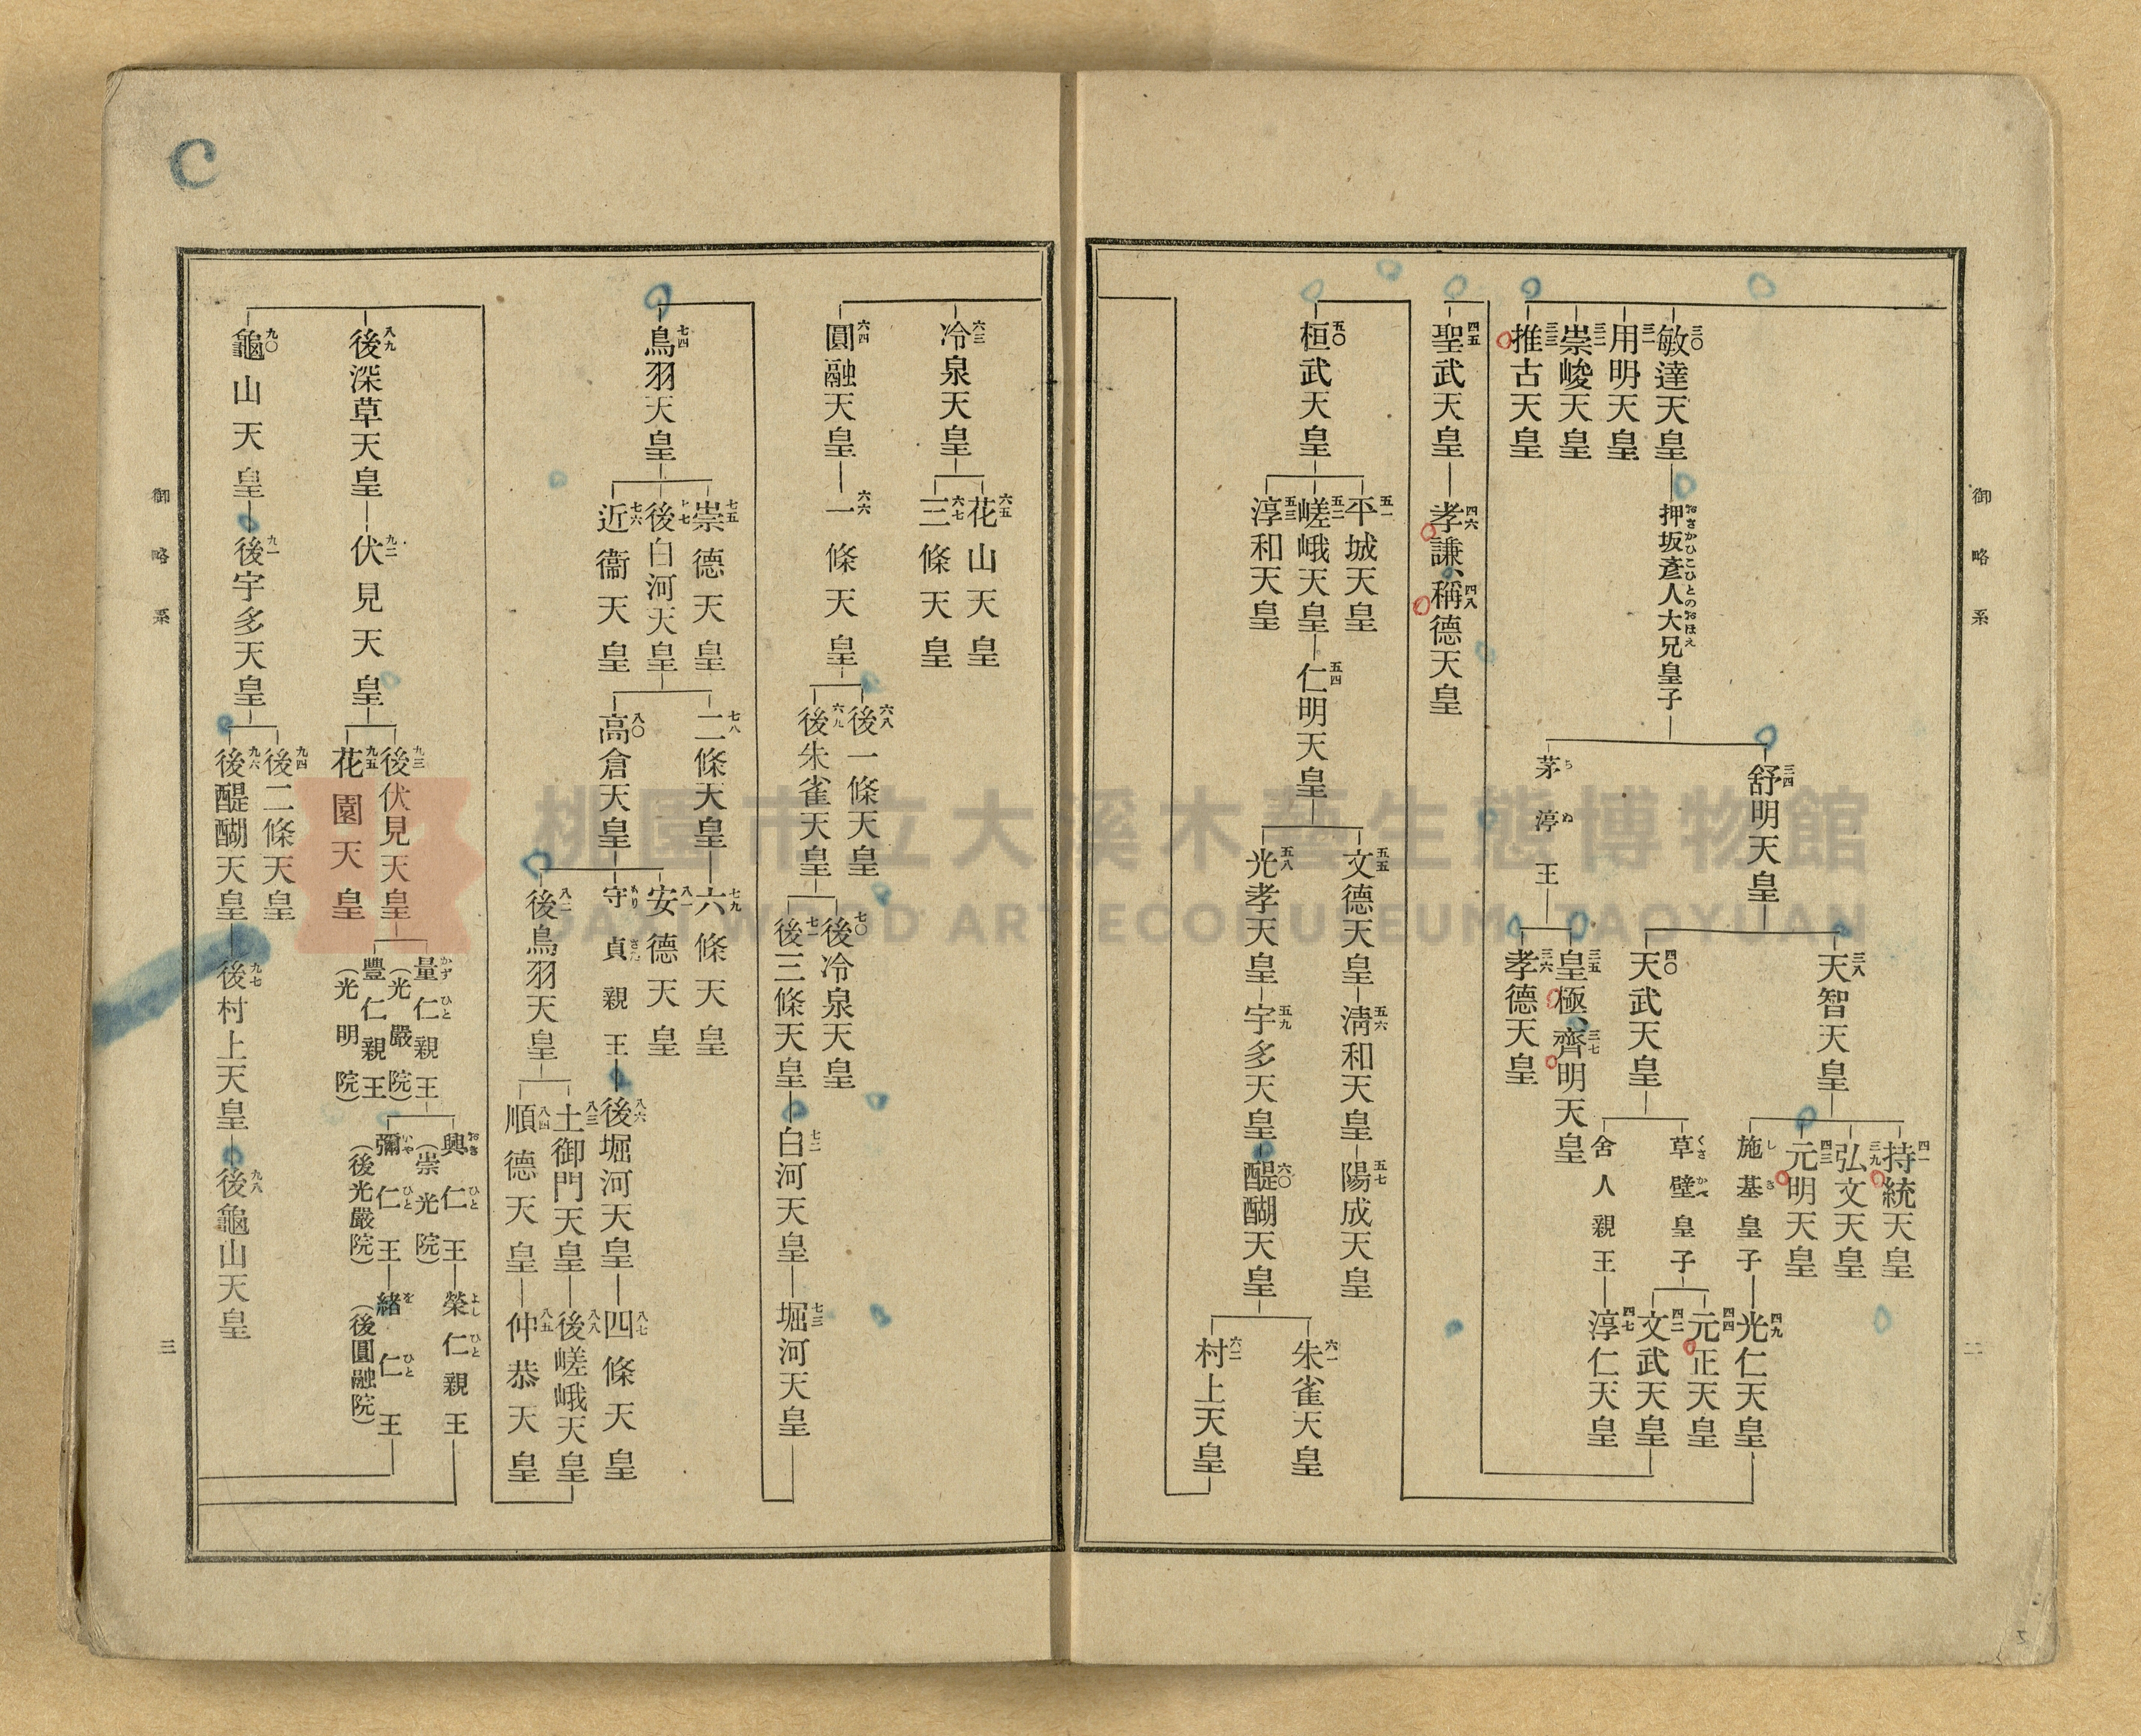 御略系
二
三〇
敏達天皇
三一
用明天皇
三二
崇峻天皇
三三
推古天皇
押坂彥人大兄皇子
おさかひこひとのおほえ
三四
舒明天皇
茅渟王
ちぬ
三八
天智天皇
四〇
天武天皇
三五
皇極、
三七
齊明天皇
三六
孝德天皇
四一
持統天皇
三九
弘文天皇
四三
元明天皇
施基皇子
しき
草壁皇子
くさかべ
舍人親王
四九
光仁天皇
四四
元正天皇
四二
文武天皇
四七
淳仁天皇
四五
聖武天皇
四六
孝謙、
四八
稱德天皇
五〇
桓武天皇
五一
平城天皇
五二
嵯峨天皇
五三
淳和天皇
五四
仁明天皇
五五
文德天皇
五六
淸和天皇
五七
陽成天皇
五八
光孝天皇
五九
宇多天皇
六〇
醍醐天皇
六一
朱雀天皇
六二
村上天皇
六三
冷泉天皇
六五
花山天皇
六七
三條天皇
六四
圓融天皇
六六
一條天皇
六八
後一條天皇
六九
後朱雀天皇
七〇
後冷泉天皇
七一
後三條天皇
七二
白河天皇
七三
堀河天皇
七四
鳥羽天皇
七五
崇德天皇
七七
後白河天皇
七六
近衞天皇
七八
二條天皇
七九
六條天皇
八〇
高倉天皇
八一
安德天皇
守貞親王
もりさだ
八二
後鳥羽天皇
八六
後堀河天皇
八七
四條天皇
八三
土御門天皇
八八
後嵯峨天皇
八四
順德天皇
八五
仲恭天皇
八九
後深草天皇
九二
伏見天皇
九三
後伏見天皇
九五
花園天皇
量仁親王
かずひと
(光嚴院)
豐仁親王
(光明院)
興仁王
おきひと
(崇光院)
榮仁親王
よしひと
彌仁王
いやひと
(後光嚴院)
緖仁王
をひと
(後圓融院)
九〇
龜山天皇
九一
後宇多天皇
九四
後二條天皇
九六
後醍醐天皇
九七
後村上天皇
九八
後龜山天皇
御略系
三
C
桃園市立大溪木藝生態博物館
DAXI WOOD ART ECOMUSEUM, TAOYUAN